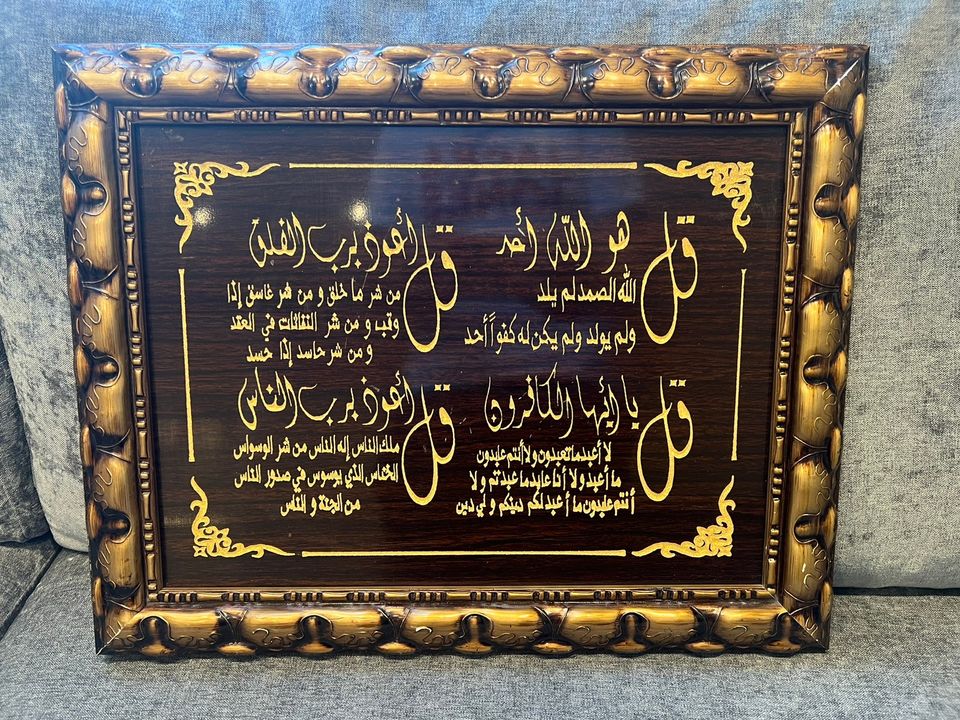 قل هو الله أحد
الله الصمد لم يلد
ولم يولد ولم يكن له كفواً أحد
قل أعوذ برب الفلق
من شر ما خلق و من شر غاسق إذا
وقب و من شر النفاثات في العقد
و من شر حاسد إذا حسد
قل يا أيها الكافرون
لا أعبد ما تعبدون ولا أنتم عابدون
ما أعبد ولا أنا عابد ما عبدتم ولا
أنتم عابدون ما أعبد لكم دينكم ولي دين
قل أعوذ برب الناس
ملك الناس إله الناس من شر الوسواس
الخناس الذي يوسوس في صدور الناس
من الجنة و الناس